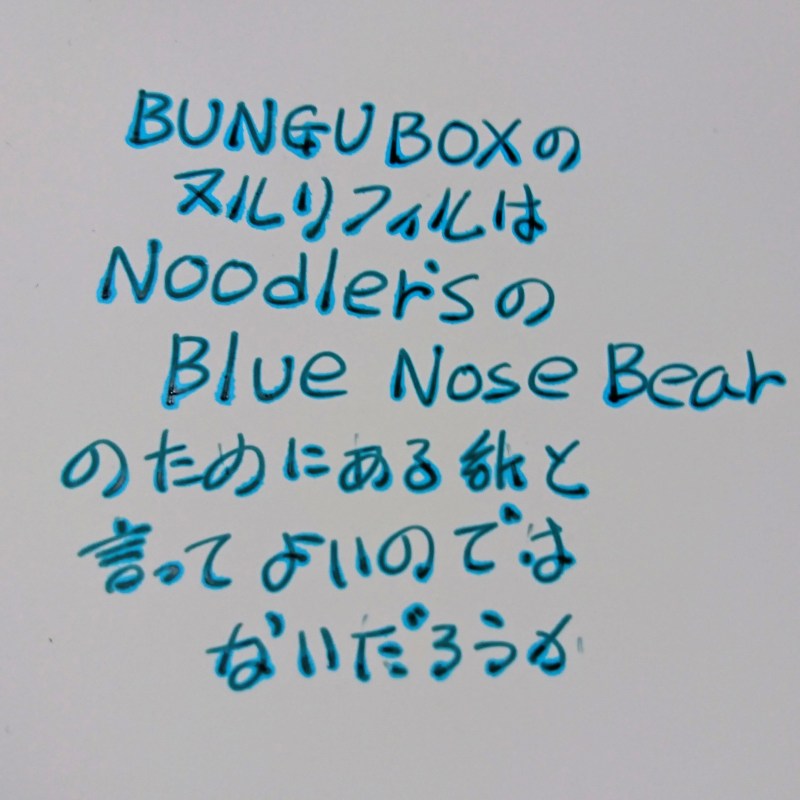 BUNGUBOXの
ヌルリフィルは
Noodler'sの
Blue Nose Bear
のためにある紙と
言ってよいのでは
ないだろうか